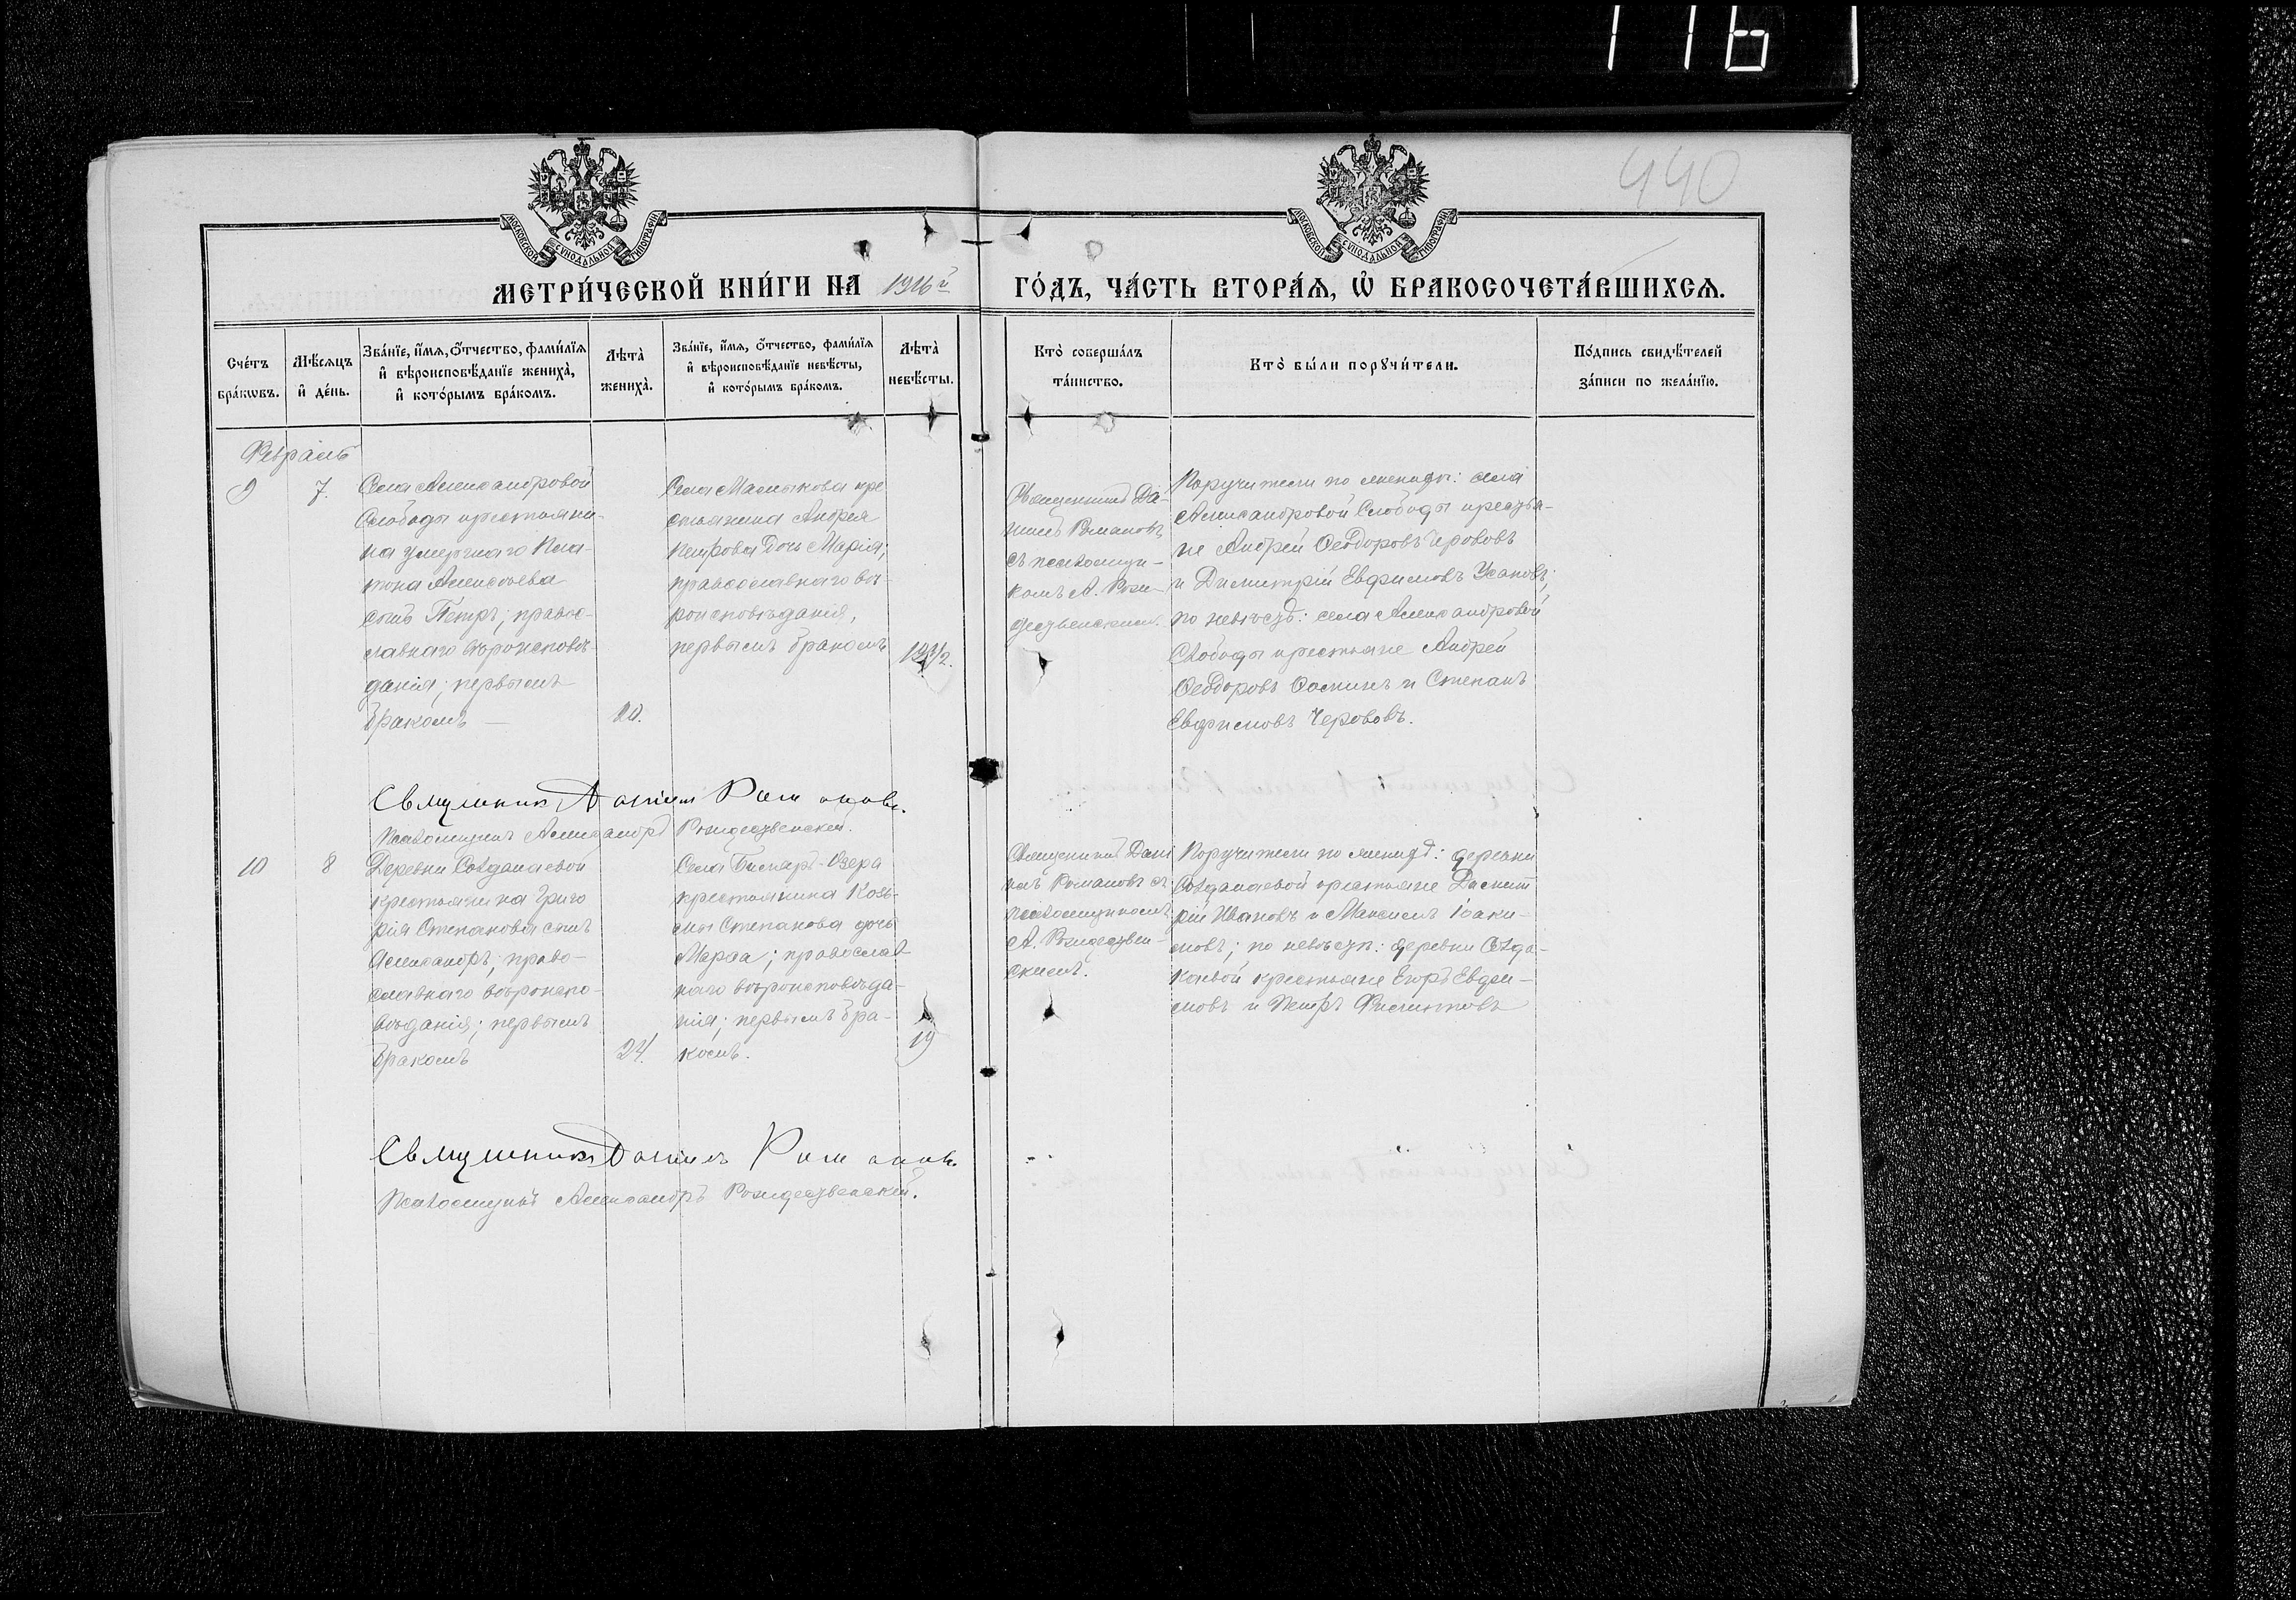 116
440
МОСКОВСКОЙ СѴНОДАЛЬНОЙ ТИПОГРАФІИ
МОСКОВСКОЙ СѴНОДАЛЬНОЙ ТИПОГРАФІИ
МЕТРИ́ЧЕСКОЙ КНИ́ГИ НА 1916й ГО́ДЪ, ЧА́СТЬ ВТОРА́Ѧ, Ѡ҆ БРАКОСОЧЕТА́ВШИХСѦ.
Сче́тъ бра́кѡвъ.
Мѣ́сяцъ и҆ де́нь.
Зва́нїе, и҆́мѧ, ѻ҆́тчество, фами́лїѧ и҆ вѣроисповѣ́данїе жениха̀, и҆ кото́рымъ бра́комъ.
Лѣта̀ жениха̀.
Зва́нїе, и҆́мѧ, ѻ҆́тчество, фами́лїѧ и҆ вѣроисповѣ́данїе невѣ́сты, и҆ кото́рымъ бра́комъ.
Лѣта̀ невѣ́сты.
Кто̀ соверша́лъ та́инство.
Кто̀ бы́ли порꙋчи́тели.
По́дпись свидѣ́телей за́писи по жела́нїю.
Февраль
9
7.
Села Александровой
Слободы крестьяни-
на умершаго Пла-
тона Алексѣева
сынъ Петръ; правос-
лавнаго вѣроисповѣ-
данія; первымъ
бракомъ
20.
Села Маслykова кре
стьянина Андрея
Петрова дочь Марія;
православнаго вѣ-
роисповѣданія,
первымъ бракомъ
Священникъ Да-
ніилъ Романовъ
съ псаломщи-
комъ А. Рож-
дественскимъ.
Поручители по женихѣ: села
Александровой Слободы крестья-
не Андрей Ѳеодоровъ Черововъ
и Димитрій Евфимовъ Усановъ;
по невѣстѣ: села Александровой
Слободы крестьяне Андрей
Ѳеодоровъ и Степанъ
Евфимовъ Черововъ.
Священникъ Даніилъ Романовъ.
Псаломщикъ Александръ Рождественскій.
10
8
Деревни
крестьянина Григо
рія Степанова сынъ
Александръ; право-
славнаго вѣроиспо-
вѣданія; первымъ
бракомъ
24.
Села Бисмарь-Озера
крестьянина Козь-
мы Степанова дочь
Марѳа; православ
наго вѣроисповѣда-
нія; первымъ бра-
комъ.
19
Священникъ Дані
илъ Романовъ съ
псаломщикомъ
А. Рождествен-
скимъ.
Поручители по женихѣ: деревни
крестьяне Димит
рій Ивановъ и Максимъ Іоаки-
мовъ; по невѣстѣ: деревни
крестьяне Егоръ Евдоки-
мовъ и Петръ Филипповъ
Священникъ Даніилъ Романовъ.
Псаломщикъ Александръ Рождественскій.